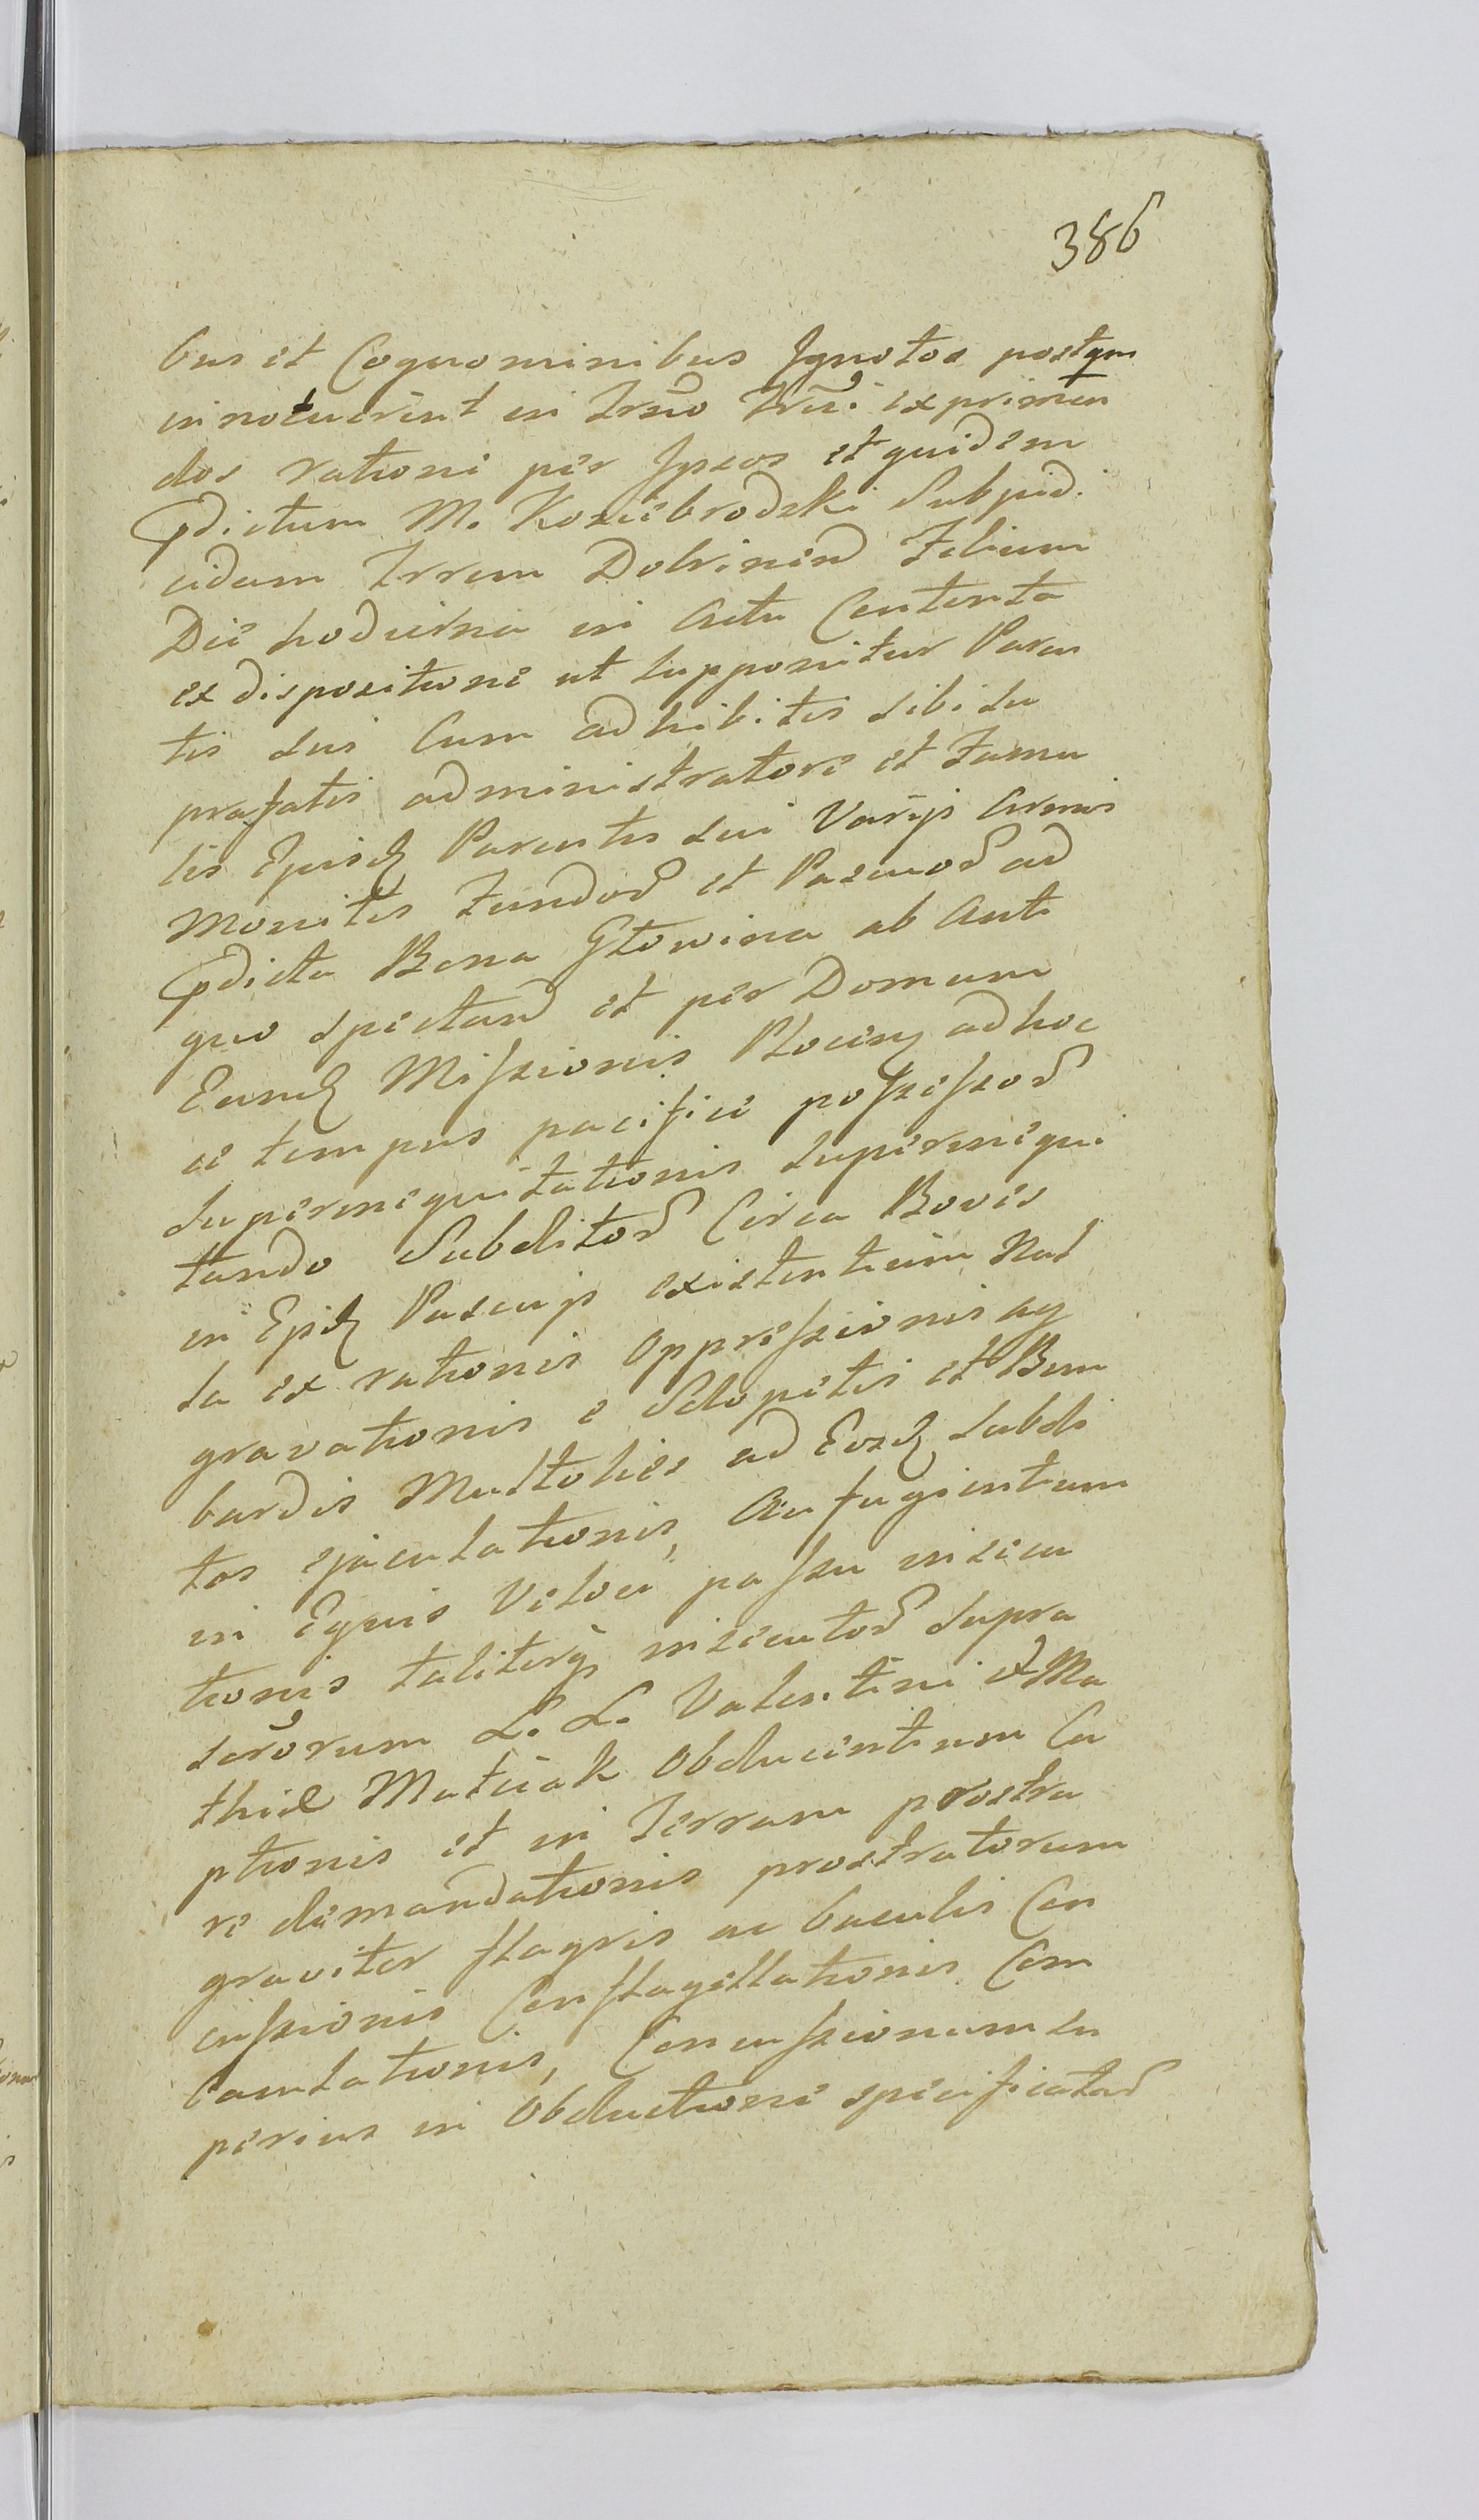 386
bus et Cognominibus Ignotos postqm
innotuerint in Trno Trni exprimen
dos ratione per Ipsos et quidem
pdictum M. Koziebrodzki Subjud.
cidam Trrum Dobrinen Filium
Die hodierna in Actu Contenta
ex dispositione ut supponitur Paren
tis sui Cum adhibitis sibi su
prafatis administratore et famu
lis Ejusd Parentis sui Varijs Armis
Monitis Fundos et Pascuos ad
pdicta Bona Głowina ab Anti
quo spectan et per Domum
Eand Missionis Plocen adhoc
ce tempus pacifice possessos
superinequitationis superinequi
tando Subditos Circa Boves
in Epis Pascujs existentium Nul
la ex rationis Oppressionis ag
gravationis e Sclopetis et Bom
bardis Multoties ad Eosd subdi
tos ejaculationis, Aufugientium
in Equis Veloci passu insecu
tionis taliterq insecutos supra
scrorum L. L. Valentini et Ma
thie Matuiak Obducentium Ca
ptionis et in Terram prostra
re demandationis prostratorum
graviter flagris ac baculis Con
cussionis Conflagellationis Com
baculationis, Concussionum su
perius in Obductione specificatas